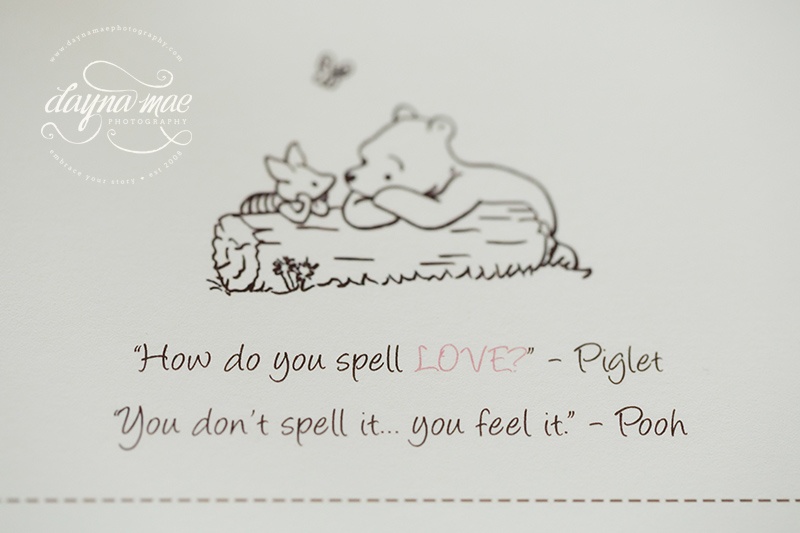 www.daynamaephotography.com
dayna mae
PHOTOGRAPHY
embrace your story • est 2008
“How do you spell LOVE?” - Piglet
“You don't spell it... you feel it.” - Pooh